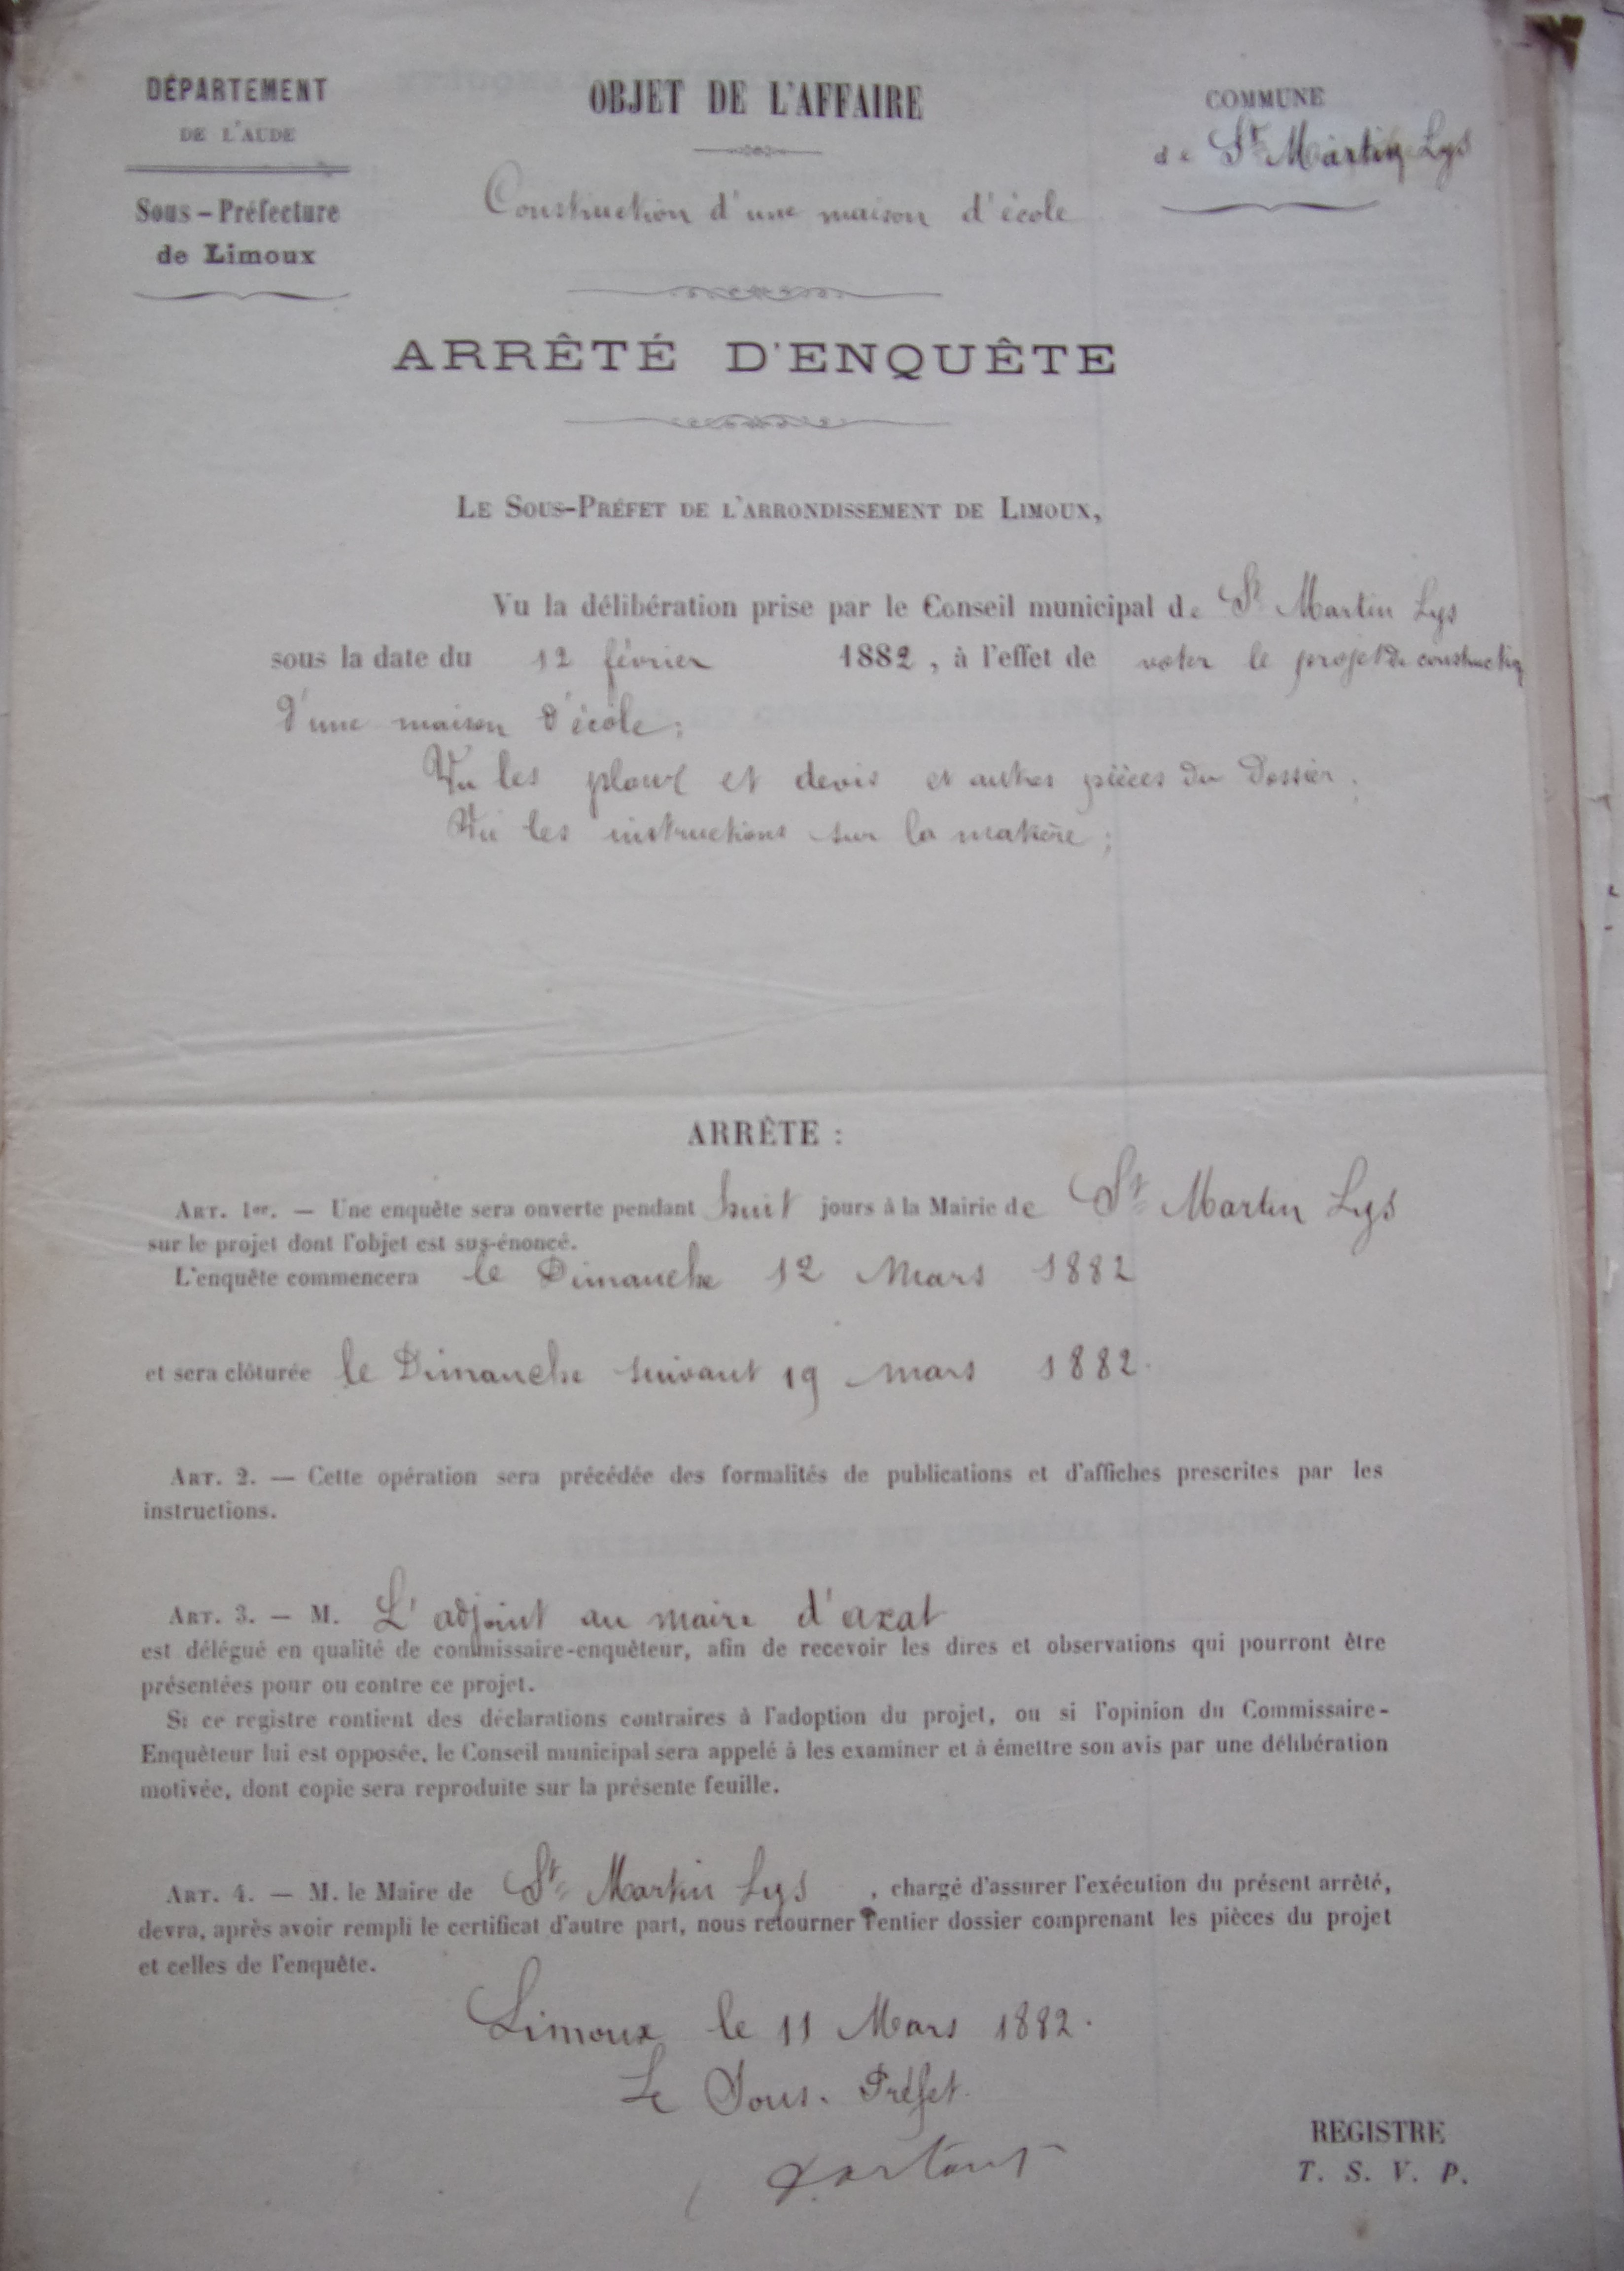 DÉPARTEMENT
DE L'AUDE
Sous-Préfecture
de Limoux
OBJET DE L'AFFAIRE
Construction d'une maison d'école
COMMUNE
de St Martin Lys
ARRÊTÉ D'ENQUÊTE
LE SOUS-PRÉFET DE L'ARRONDISSEMENT DE LIMOUX,
Vu la délibération prise par le Conseil municipal de St Martin Lys
sous la date du 12 février 1882, à l'effet de voter le projet de construction
d'une maison d'école;
Vu les plans et devis et autres pièces du dossier;
Vu les instructions sur la matière;
ARRÊTE :
ART. 1er. — Une enquête sera ouverte pendant huit jours à la Mairie de St Martin Lys
sur le projet dont l'objet est sus-énoncé.
L'enquête commencera le Dimanche 12 Mars 1882
et sera clôturée le Dimanche suivant 19 mars 1882.
ART. 2. — Cette opération sera précédée des formalités de publications et d'affiches prescrites par les
instructions.
ART. 3. — M. L'adjoint au maire d'axat
est délégué en qualité de commissaire-enquêteur, afin de recevoir les dires et observations qui pourront être
présentées pour ou contre ce projet.
Si ce registre contient des déclarations contraires à l'adoption du projet, ou si l'opinion du Commissaire-
Enquêteur lui est opposée, le Conseil municipal sera appelé à les examiner et à émettre son avis par une délibération
motivée, dont copie sera reproduite sur la présente feuille.
ART. 4. — M. le Maire de St Martin Lys, chargé d'assurer l'exécution du présent arrêté,
devra, après avoir rempli le certificat d'autre part, nous retourner l'entier dossier comprenant les pièces du projet
et celles de l'enquête.
Limoux le 11 Mars 1882.
Le Sous-Préfet
REGISTRE
T. S. V. P.